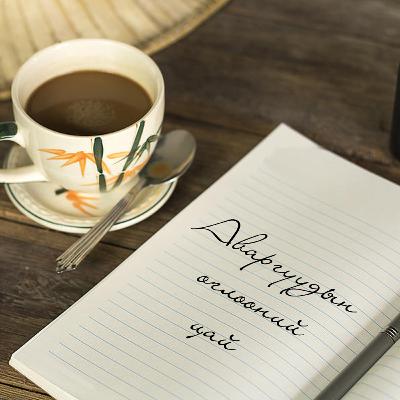 Аваргуудын
оглооний
цай